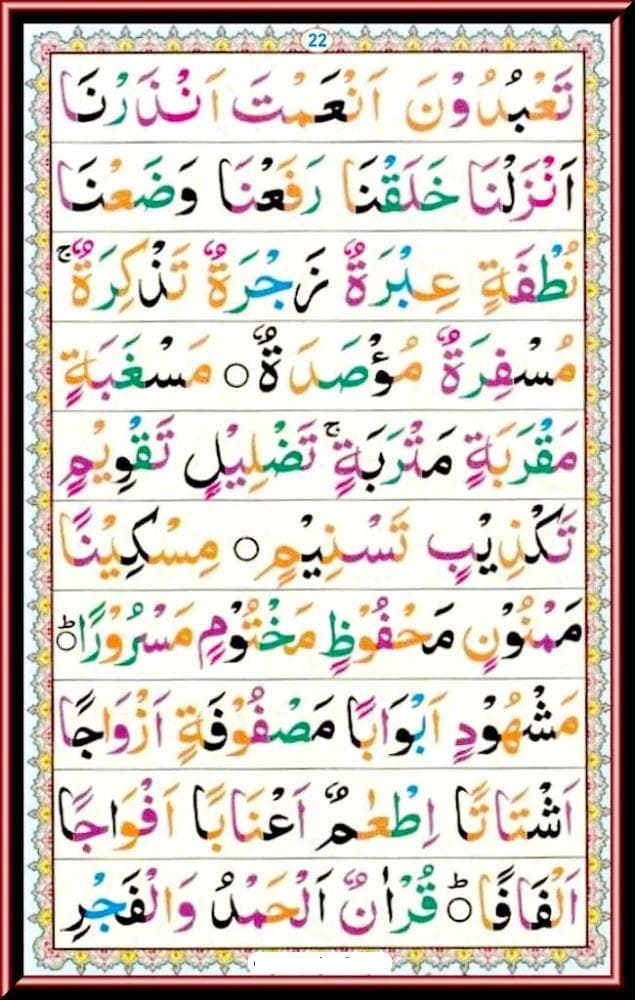 22
تَعْبُدُوْنَ اَنْعَمْتَ اَنْذَرْنَا
اَنْزَلْنَا خَلَقْنَا رَفَعْنَا وَضَعْنَا
نُطْفَةٍ عِبْرَةٌ زَجْرَةٌ تَذْكِرَةٌ ۚ
مُسْفِرَةٌ مُؤْصَدَةٌ ○ مَسْغَبَةٍ
مَقْرَبَةٍ مَتْرَبَةٍ ۚ تَضْلِيْلٍ تَقْوِيْمٍ
تَكْذِيْبٍ تَسْنِيْمٍ ○ مِسْكِيْنًا
مَمْنُوْنٍ مَحْفُوْظٍ مَخْتُوْمٍ مَسْرُوْرًا ○ؕ
مَشْهُوْدٍ اَبْوَابًا مَصْفُوْفَةٍ اَزْوَاجًا
اَشْتَاتًا اِطْعٰمٌ اَعْنَابًا اَفْوَاجًا
اَلْفَافًا ○ؕ قُرْاٰنٌ اَلْحَمْدُ وَالْفَجْرِ